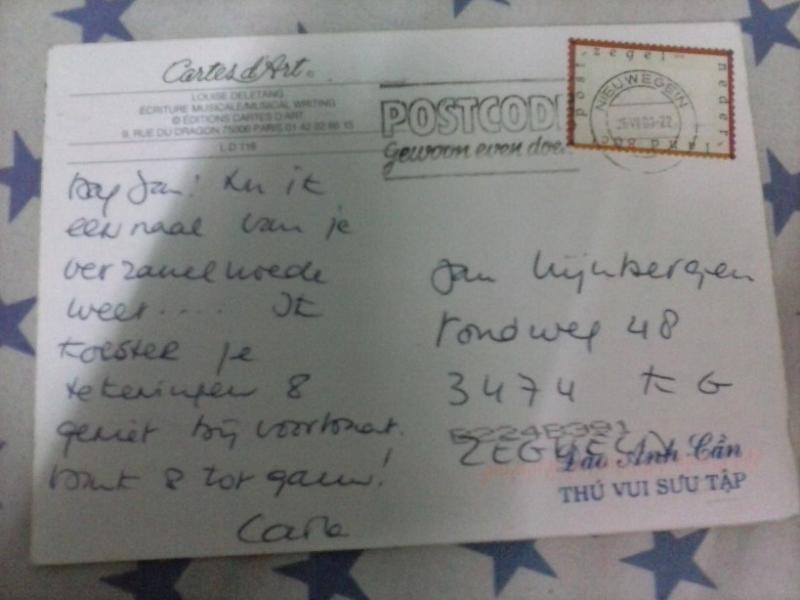 Cartes d'Art ©
LOUISE DELETANG
ÉCRITURE MUSICALE/MUSICAL WRITING
© ÉDITIONS CARTES D'ART
9, RUE DU DRAGON 75006 PARIS 01 42 22 86 15
L D 116
POSTCODE
gewoon even doe
post
zegel
neder
land 80
NIEUWEGEIN
Dag Jan! Nu ik
eenmaal van je
verzamelwoede
weet.... Ik
koester je
tekeningen &
geniet bij voorbaat.
Dank & tot gauw!
Carla
Jan
rondweg 48
3474 KG
ZEGVELD
Đào Anh Cần
THÚ VUI SƯU TẬP